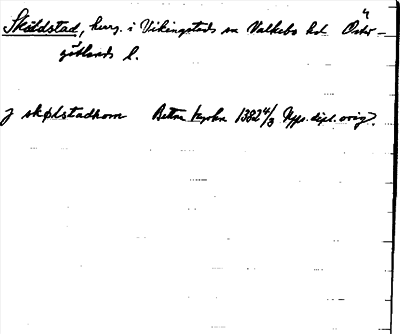 Sköldstad, herrg. i Vikingstads sn Valkebo hd Öster-
götlands l.
j skølstadhom Betna kyrka 1382 4/3 Upps. dipl. orig.